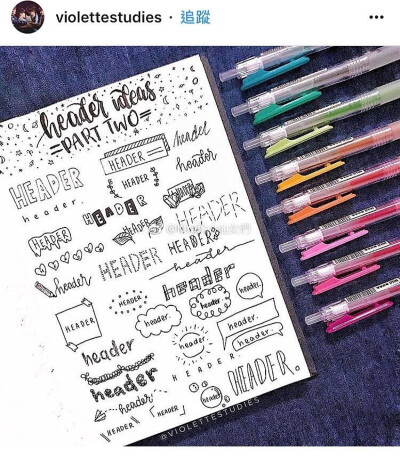 violettestudies · 追蹤
header ideas
=PART TWO=
HEADER
header
HEADER
header
HEADER
header.
HEADER
HEADER
HEADER
HEADER
HEADER
HEADERS
header
header
HEADER
header
HEADER
header
header
header.
header.
header
header
HEADER.
header
header
HEADER
HEADER
header
HEADER.
@VIOLETTESTUDIES